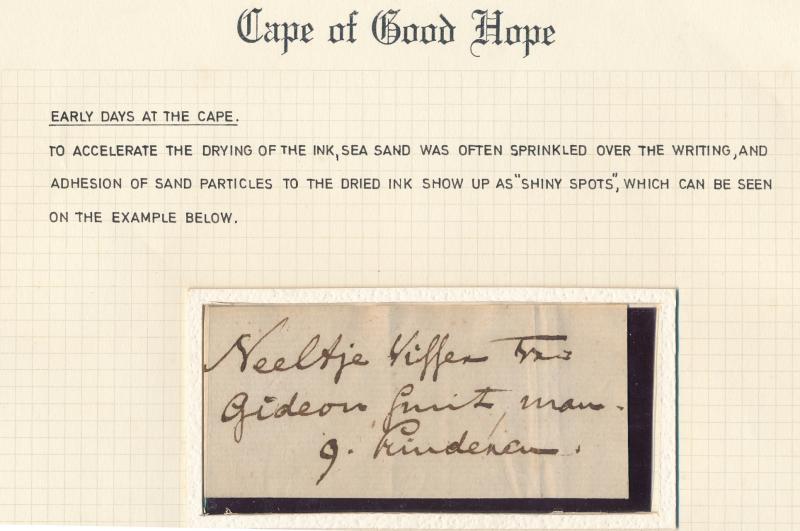 Cape of Good Hope
EARLY DAYS AT THE CAPE.
TO ACCELERATE THE DRYING OF THE INK, SEA SAND WAS OFTEN SPRINKLED OVER THE WRITING, AND
ADHESION OF SAND PARTICLES TO THE DRIED INK SHOW UP AS "SHINY SPOTS", WHICH CAN BE SEEN
ON THE EXAMPLE BELOW.
Neeltje
Gideon Smit, man.
9.